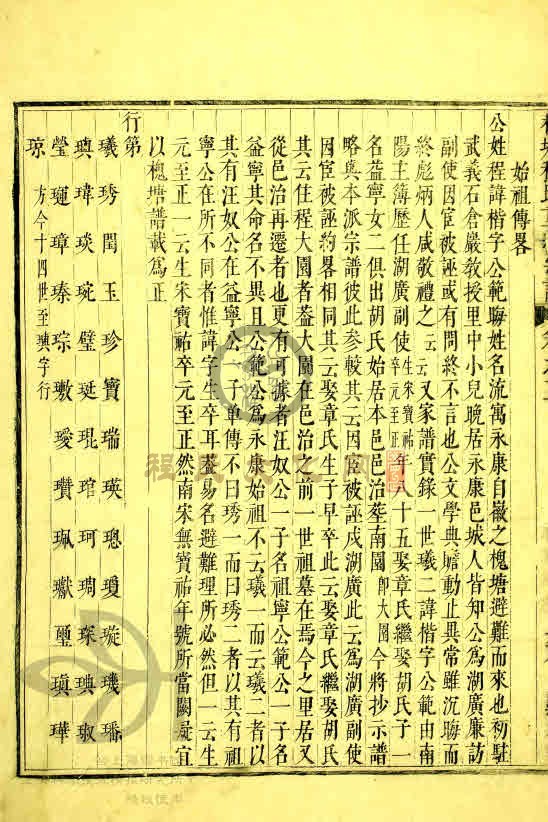 始祖傳畧
公姓程諱楷字公範晦姓名流寓永康自徽之槐塘避難而來也初駐
武義石倉嚴敎授里中小兒晚居永康邑城人皆知公爲湖廣廉訪
副使因宦被誣或有問終不言也公文學典贍動止異常雖沉晦而
終彪炳人咸敬禮之云云又家譜實錄一世羲二諱楷字公範由南
陽主簿歷任湖廣副使生宋寶祐卒元至正年八十五娶章氏繼娶胡氏子一
名益寧女二俱出胡氏始居本邑邑治塟南園卽大園今將抄示譜
略與本派宗譜彼此參較其云因宦被誣戍湖廣此云爲湖廣副使
因宦被誣約畧相同其云娶章氏生子早卒此云娶章氏繼娶胡氏
其云住程大園者葢大園在邑治之前一世祖墓在焉今之里居又
從邑治再遷者也更有可據者汪奴公一子名祖寧公範公一子名
益寧其命名不異且公範公爲永康始祖不云羲一而云羲二者以
其有汪奴公在益寧公一子單傳不曰琇一而曰琇二者以其有祖
寧公在所不同者惟諱字生卒耳葢易名避難理所必然但一云生
元至正一云生宋寶祐卒元至正然南宋無寶祐年號所當闕疑宜
以槐塘譜載爲正
行第
羲琇閏玉珍寶瑞瑛璁璦璇璣璠
璵瑋琰琬璧珽琨琯珂琱琛琠琡
瑩璭璋瑧琮璷璦瓚珮瓛璽瑱瑋
琼
方今十四世至璵字行